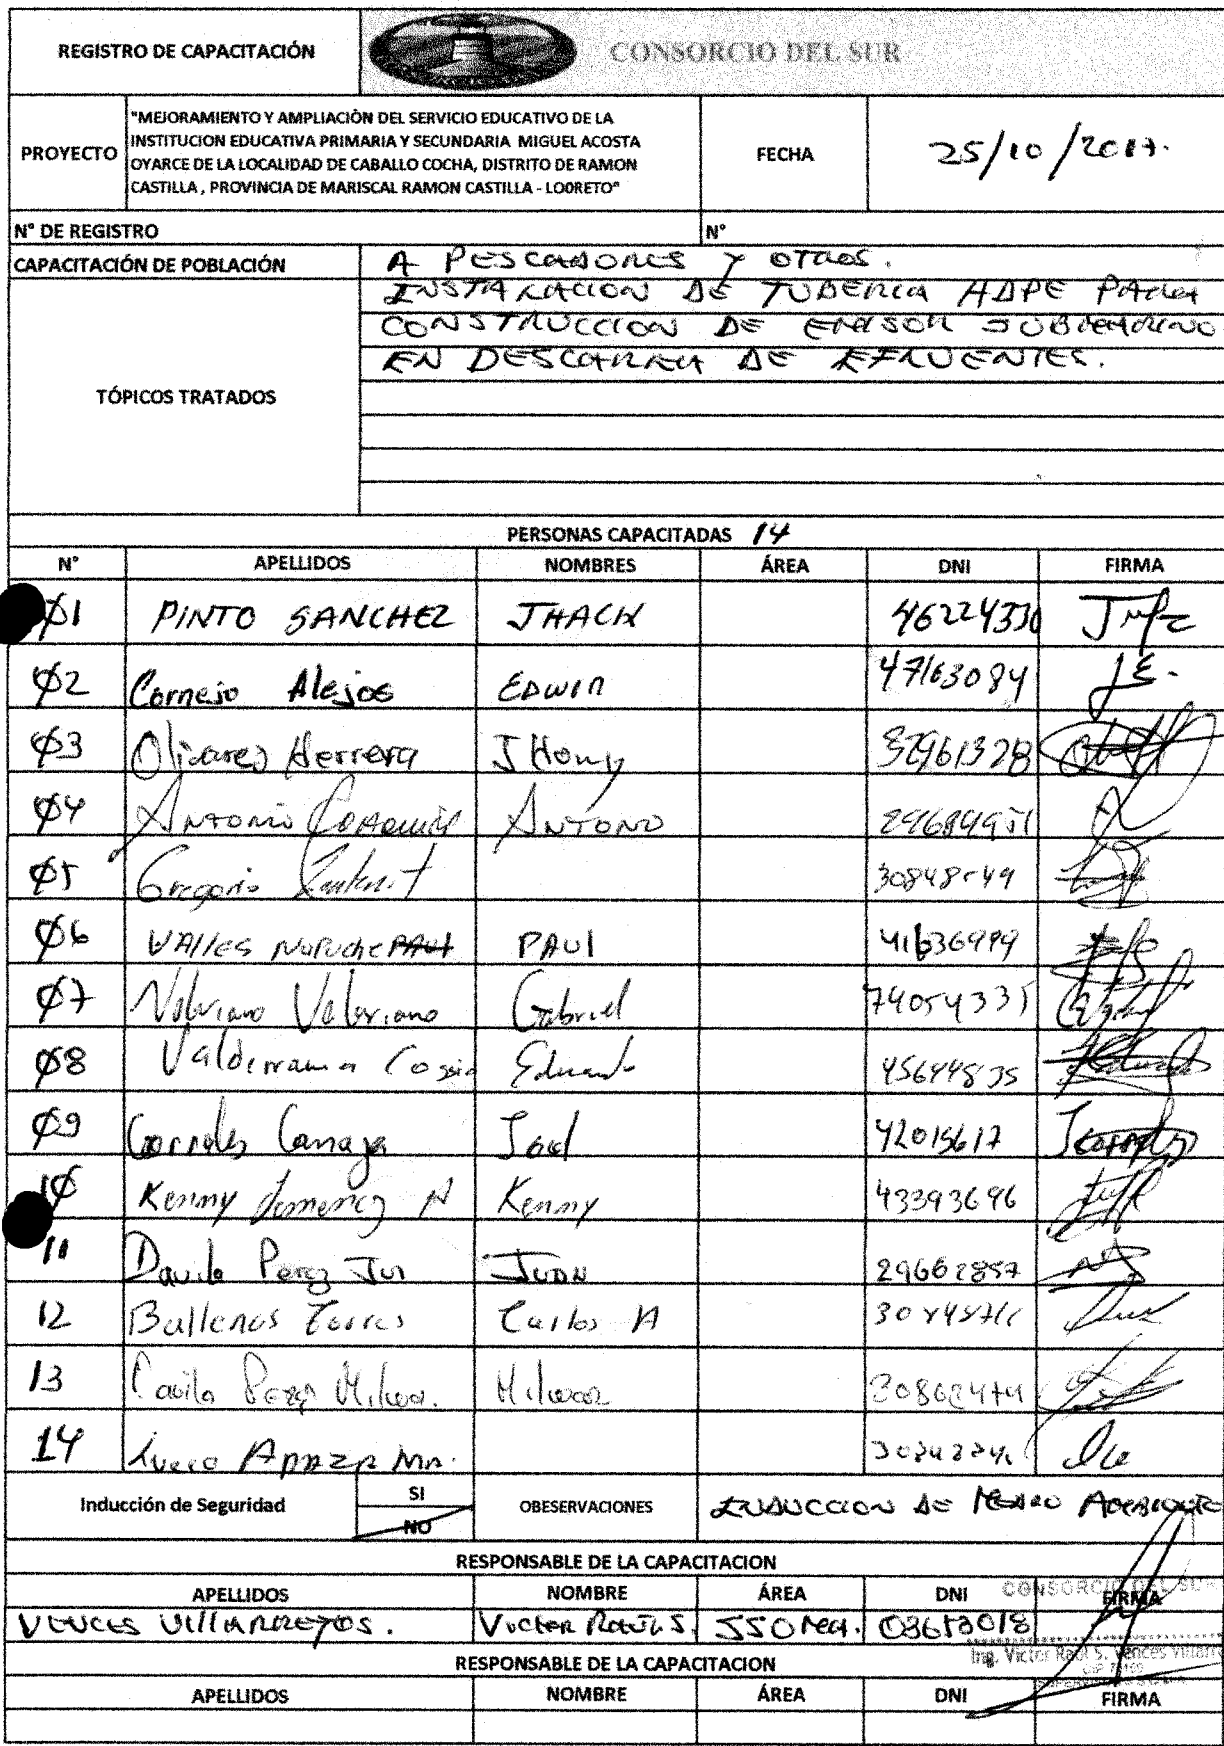 REGISTRO DE CAPACITACIÓN
CONSORCIO DEL SUR
PROYECTO
"MEJORAMIENTO Y AMPLIACIÒN DEL SERVICIO EDUCATIVO DE LA
INSTITUCION EDUCATIVA PRIMARIA Y SECUNDARIA MIGUEL ACOSTA
OYARCE DE LA LOCALIDAD DE CABALLO COCHA, DISTRITO DE RAMON
CASTILLA , PROVINCIA DE MARISCAL RAMON CASTILLA - LOORETO"
FECHA
25/10/2017.
N° DE REGISTRO
N°
CAPACITACIÓN DE POBLACIÓN
A PESCADORES Y OTROS.
TÓPICOS TRATADOS
INSTALACION DE TUBERIA HDPE PARA
CONSTRUCCION DE EMISOR SUBMARINO
EN DESCARGA DE EFLUENTES.
PERSONAS CAPACITADAS 14
N° APELLIDOS NOMBRES ÁREA DNI FIRMA
01 PINTO SANCHEZ JHACK 46224330
02 Cornejo Alejos EDWIN 47163084
03 Olivares Herrera JHony 32961328
04 ANTONIO ANTONO
05 Gregorio
06 VAllES PAUl PAUl 41636999
07 Valeriano Valeriano Gabriel 74054335
08 Valderrama Cossio Eduardo 45644835
09 Corrales Joel 42015617
10 Kenny Jimenez A Kenny 43393696
11 Davila Perez Jui JUAN 29662857
12 Ballenas Torres Carlos A
13 Davila Perez 30862474
14 Apaza
Inducción de Seguridad
SI
NO
OBESERVACIONES
INDUCCION DE MEDIO AMBIENTE
RESPONSABLE DE LA CAPACITACION
APELLIDOS NOMBRE ÁREA DNI FIRMA
CONSORCIO DEL SUR
VENCES VILLARREYOS. Victor Raúl S. SSOMA. 03673018
Ing. Victor Raúl S. Vences
RESPONSABLE DE LA CAPACITACION
APELLIDOS NOMBRE ÁREA DNI FIRMA